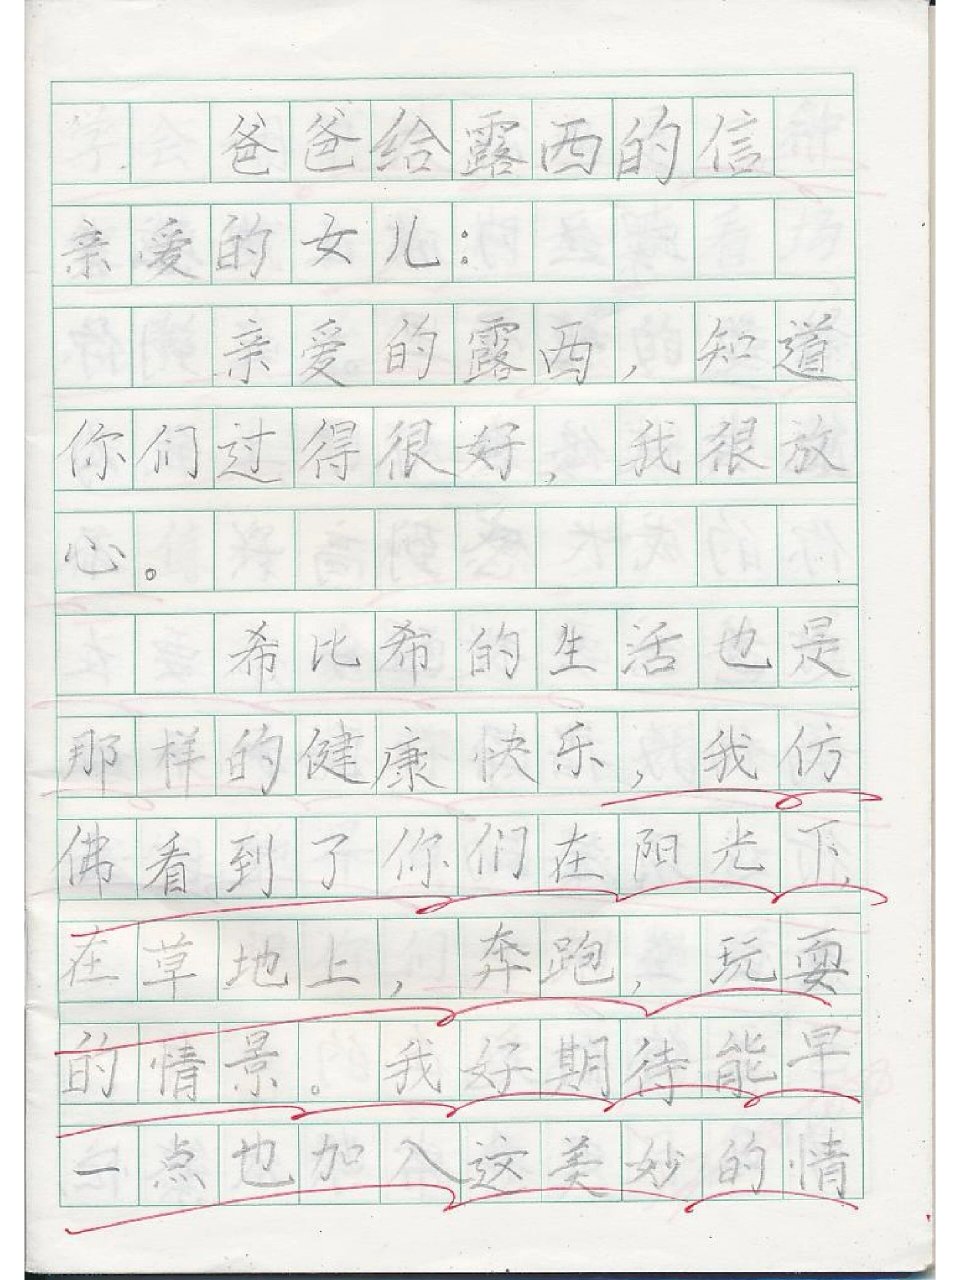 爸爸给露西的信
亲爱的女儿：
亲爱的露西，知道
你们过得很好，我很放
心。
希比希的生活也是
那样的健康快乐，我仿
佛看到了你们在阳光下，
在草地上，奔跑，玩耍
的情景。我好期待能早
一点也加入这美妙的情